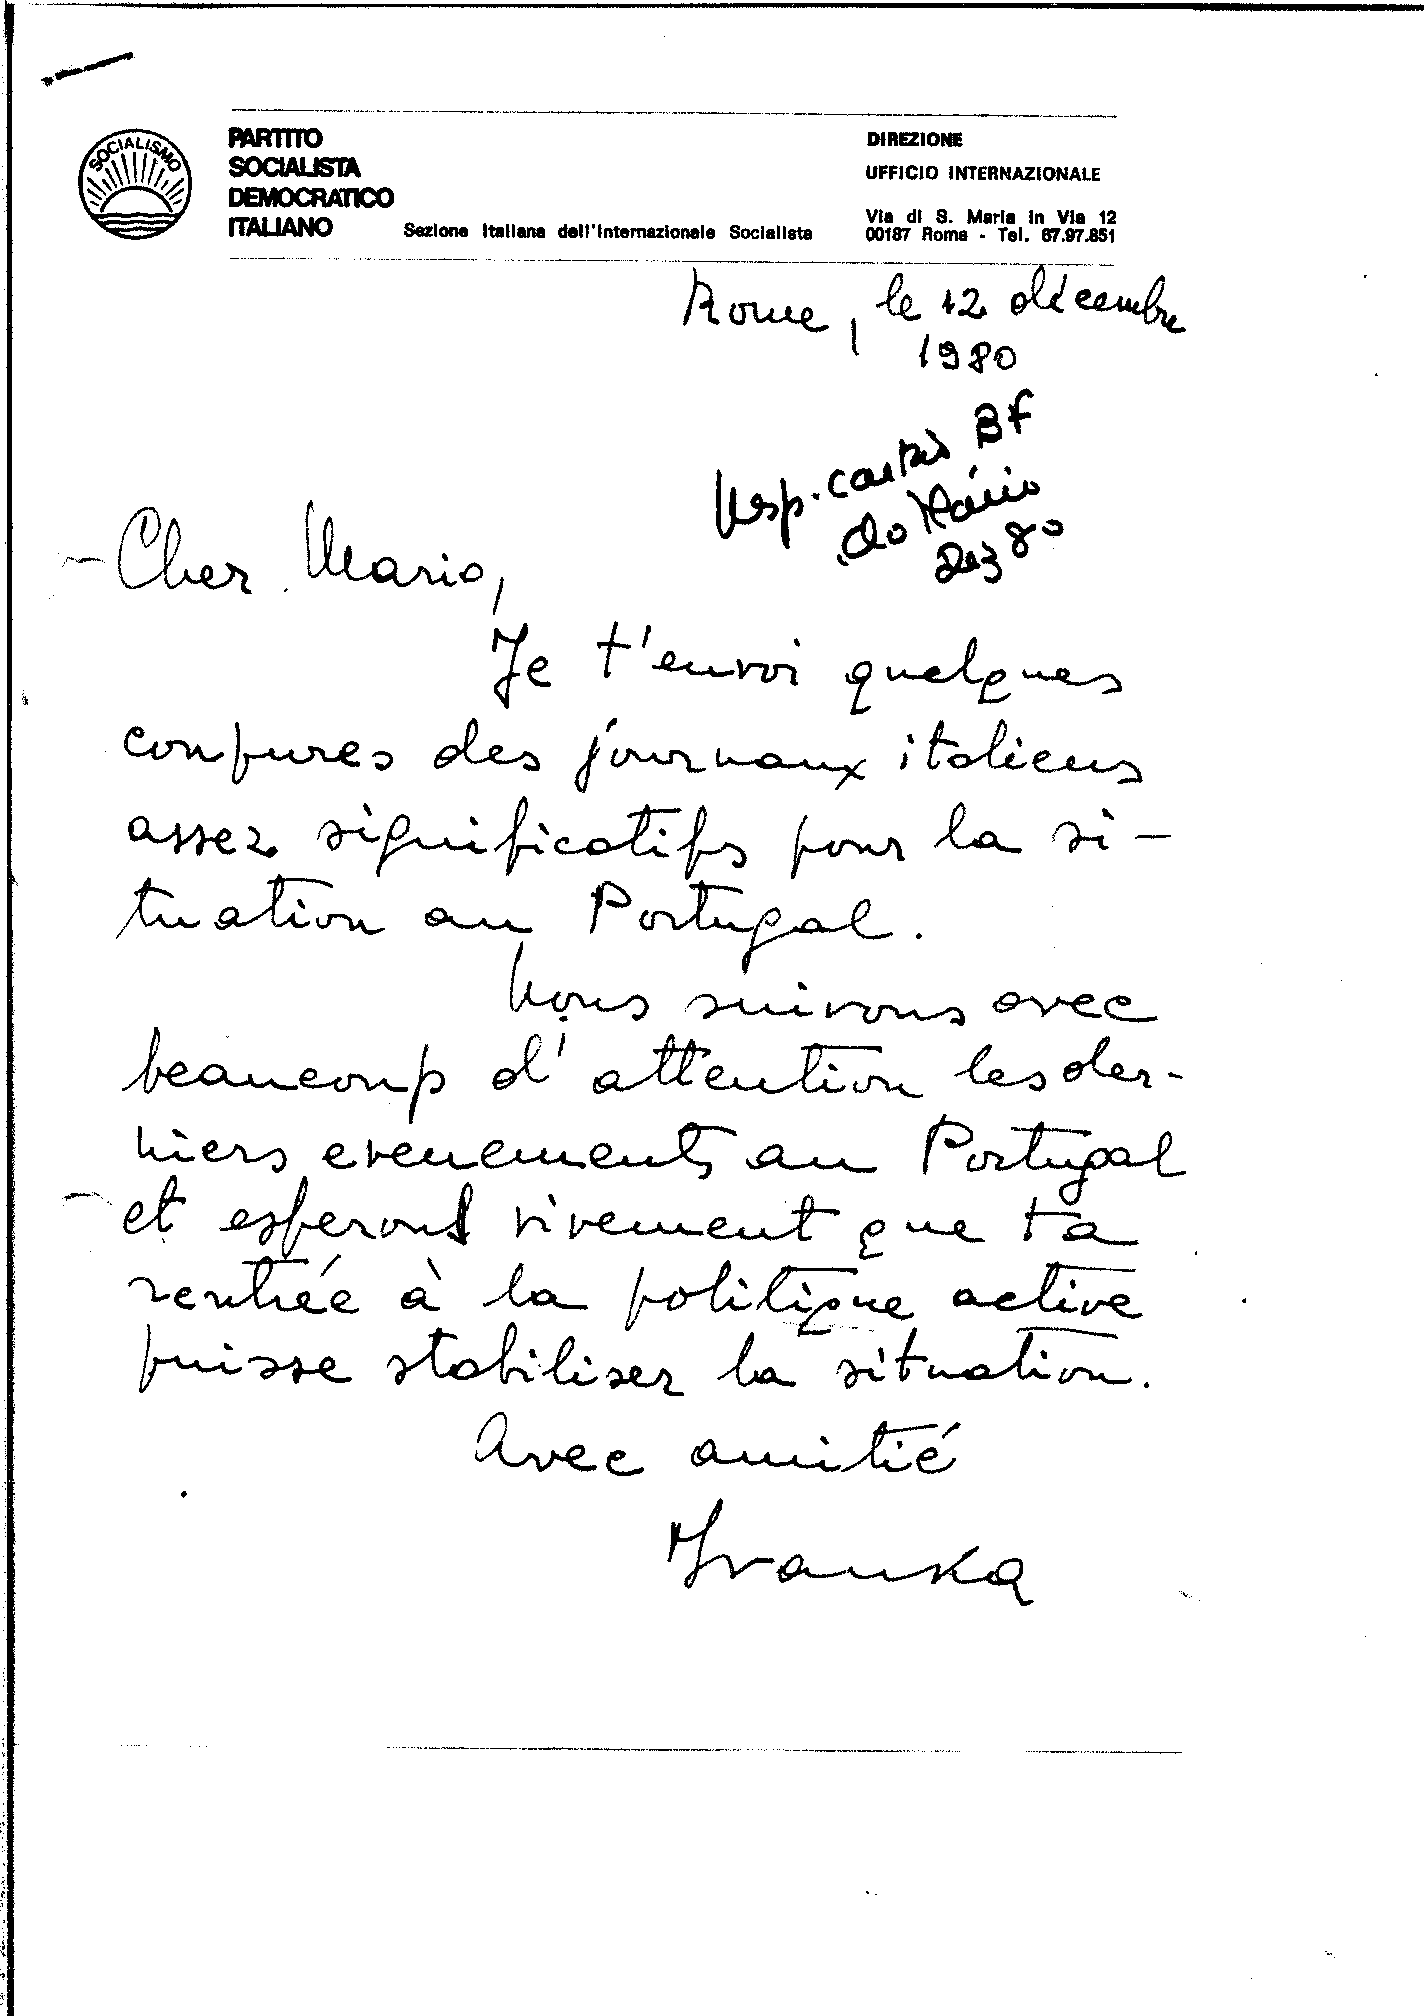 SOCIALISMO
PARTITO
SOCIALISTA
DEMOCRATICO
ITALIANO
Sezione Italiana dell'Internazionale Socialista
DIREZIONE
UFFICIO INTERNAZIONALE
Via di S. Maria in Via 12
00187 Roma - Tel. 67.97.851
Rome, le 12 décembre
1980
Resp. cartão BF
do Mário
Dez 80
Cher Mario,
Je t'envoi quelques
coupures des journaux italiens
assez significatifs pour la si-
tuation au Portugal.
Nous suivons avec
beaucoup d'attention les der-
niers evenements au Portugal
et esperons vivement que ta
rentrée à la politique active
puisse stabiliser la situation.
Avec amitié
Ivanka